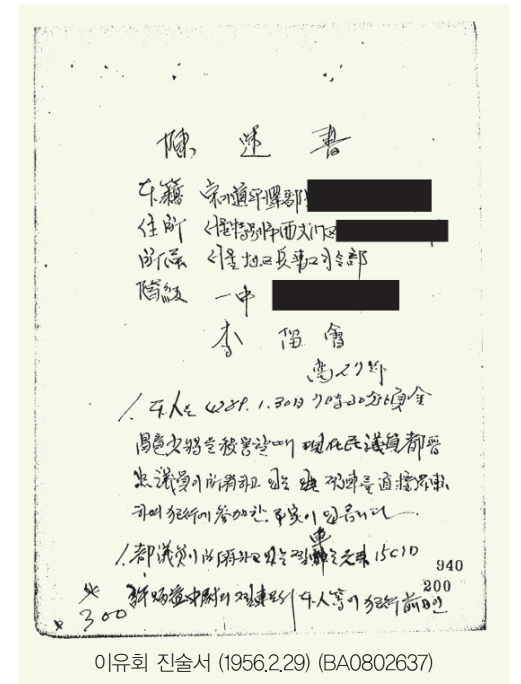 陳述書
本籍 京畿道平澤郡
住所 서울特別市西大門区
所属 서울地区兵事区司令部
階級 一中
李留會
當27年
1. 本人은 4289. 1. 30日 7時30分頃 金
昌龍少將을 殺害할때 現在民議員都晋
議員이 所有하고 있는 찦車를 直接
하여 犯行에 參加한 事実이 있읍니다
1. 都議員이 所有하고 있는 찦車는 元来 15010
許炳益中尉의 찦車로서 本人等이 犯行前日인
940
200
300
이유회 진술서 (1956.2.29) (BA0802637)